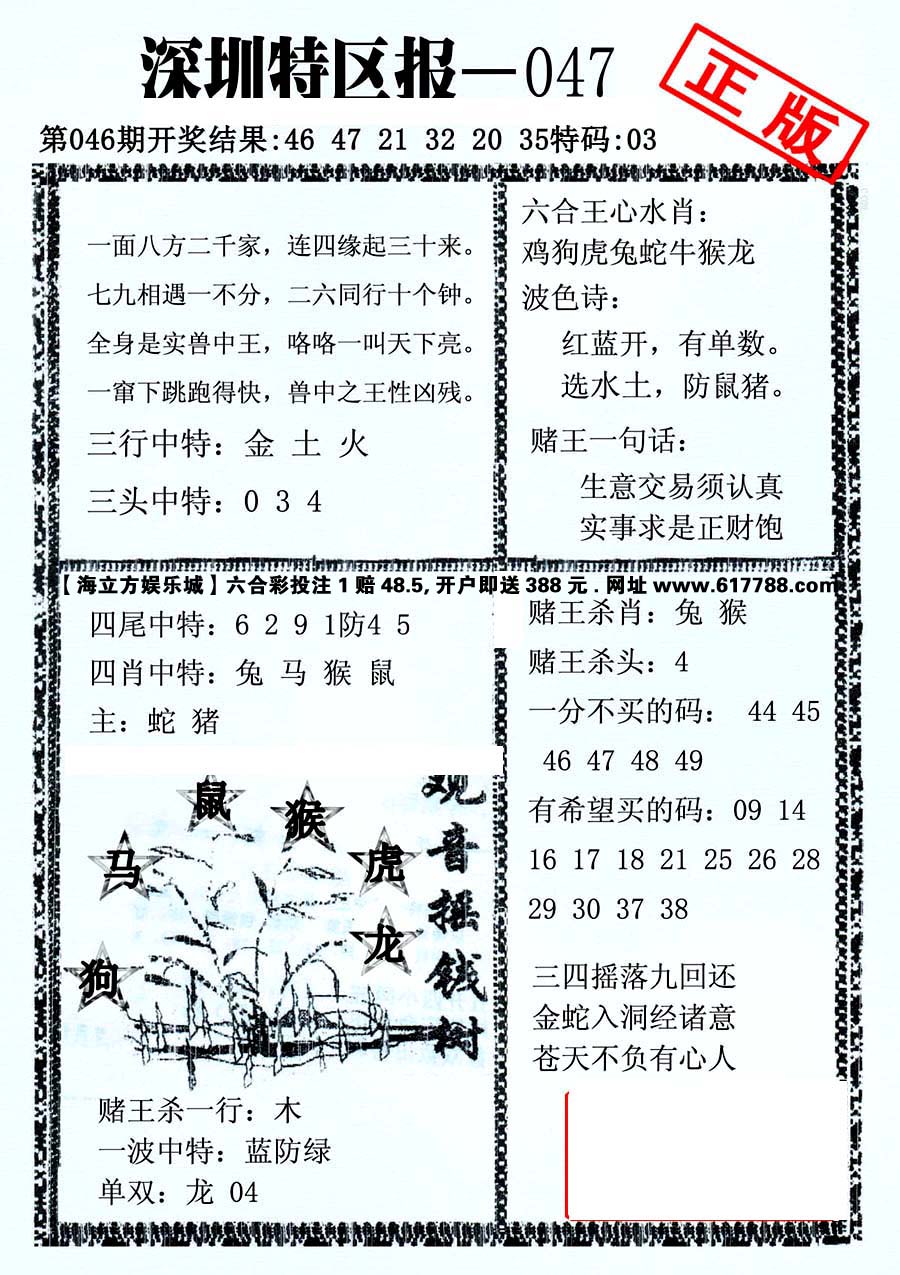 深圳特区报—047
正版
第046期开奖结果:46 47 21 32 20 35特码:03
一面八方二千家，连四缘起三十来。
七九相遇一不分，二六同行十个钟。
全身是实兽中王，咯咯一叫天下亮。
一窜下跳跑得快，兽中之王性凶残。
三行中特：金 土 火
三头中特：0 3 4
六合王心水肖：
鸡狗虎兔蛇牛猴龙
波色诗：
红蓝开，有单数。
选水土，防鼠猪。
赌王一句话：
生意交易须认真
实事求是正财饱
【海立方娱乐城】六合彩投注1赔48.5,开户即送388元.网址www.617788.com
四尾中特：6 2 9 1防4 5
四肖中特：兔 马 猴 鼠
主：蛇 猪
观音摇钱树
鼠
猴
马
虎
龙
狗
赌王杀一行：木
一波中特：蓝防绿
单双：龙 04
赌王杀肖：兔 猴
赌王杀头：4
一分不买的码： 44 45
46 47 48 49
有希望买的码：09 14
16 17 18 21 25 26 28
29 30 37 38
三四摇落九回还
金蛇入洞经诸意
苍天不负有心人